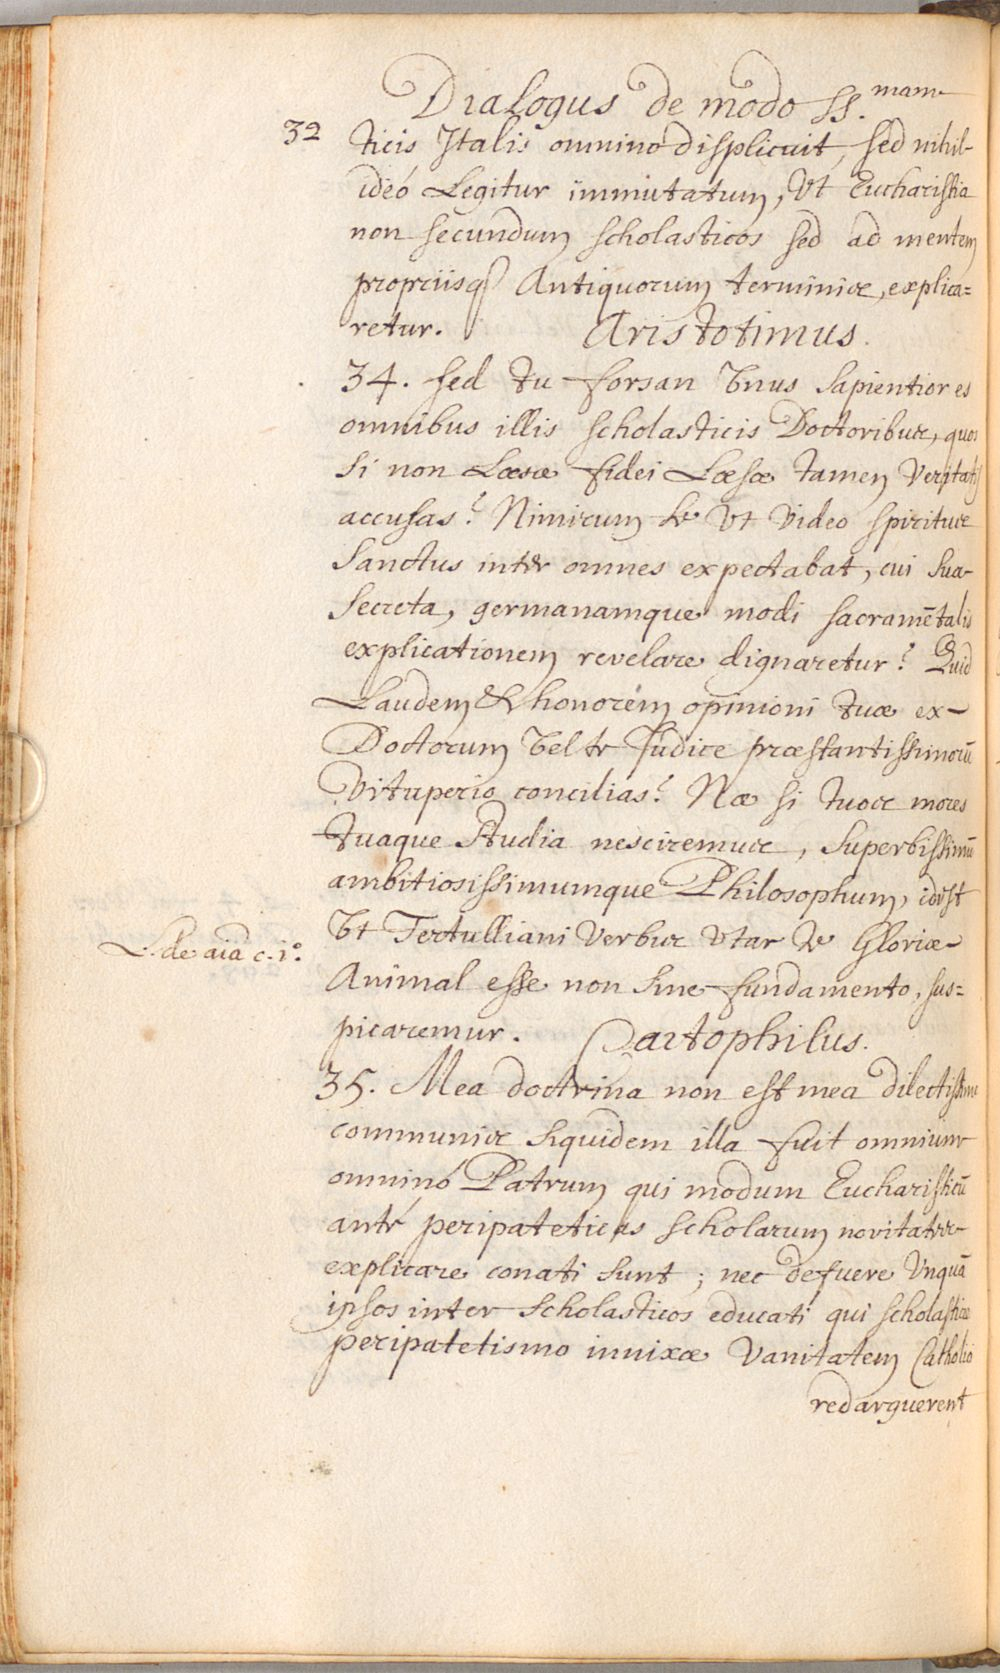 Dialogus de modo SS. mam
32 ticis Italis omninò displicuit, sed nihil
ideò Legitur immutatum, Vt Eucharistia
non secundum scholasticos sed ad mentem
propriisq Antiquorum terminis, explica=
retur. Aristotimus.
34. sed tu forsan Vnus Sapientior es
omnibus illis scholasticis Doctoribus, quos
si non Læsæ fidei Læsæ tamen Veritatis
accusas? Nimirum te Vt Video spiritus
Sanctus inter omnes expectabat, cui Sua
Secreta, germanamque modi sacramētalis
explicationem revelare dignaretur? Quid
Laudem & honorem opinioni tuæ ex
Doctorum Vel te Iudice præstantissimorū
Vituperio concilias? Næ si tuos mores
tuaque Studia nesciremus, Superbissimū
ambitiosissimumque Philosophum, idest
Vt Tertulliani Verbis Vtar te Gloriæ
L. de aīa c. 1°.
Animal esse non Sine fundamento, sus=
picaremur. Cartophilus.
35. Mea doctrina non est mea dilectissime
communis Siquidem illa fuit omnium
omninò Patrum qui modum Eucharisticū
antè peripateticas scholarum novitates
explicare conati Sunt; nec defuere Vnquā
ipsos inter Scholasticos educati qui scholasticæ
peripatetismo innixæ Vanitatem Catholici
redarguerent